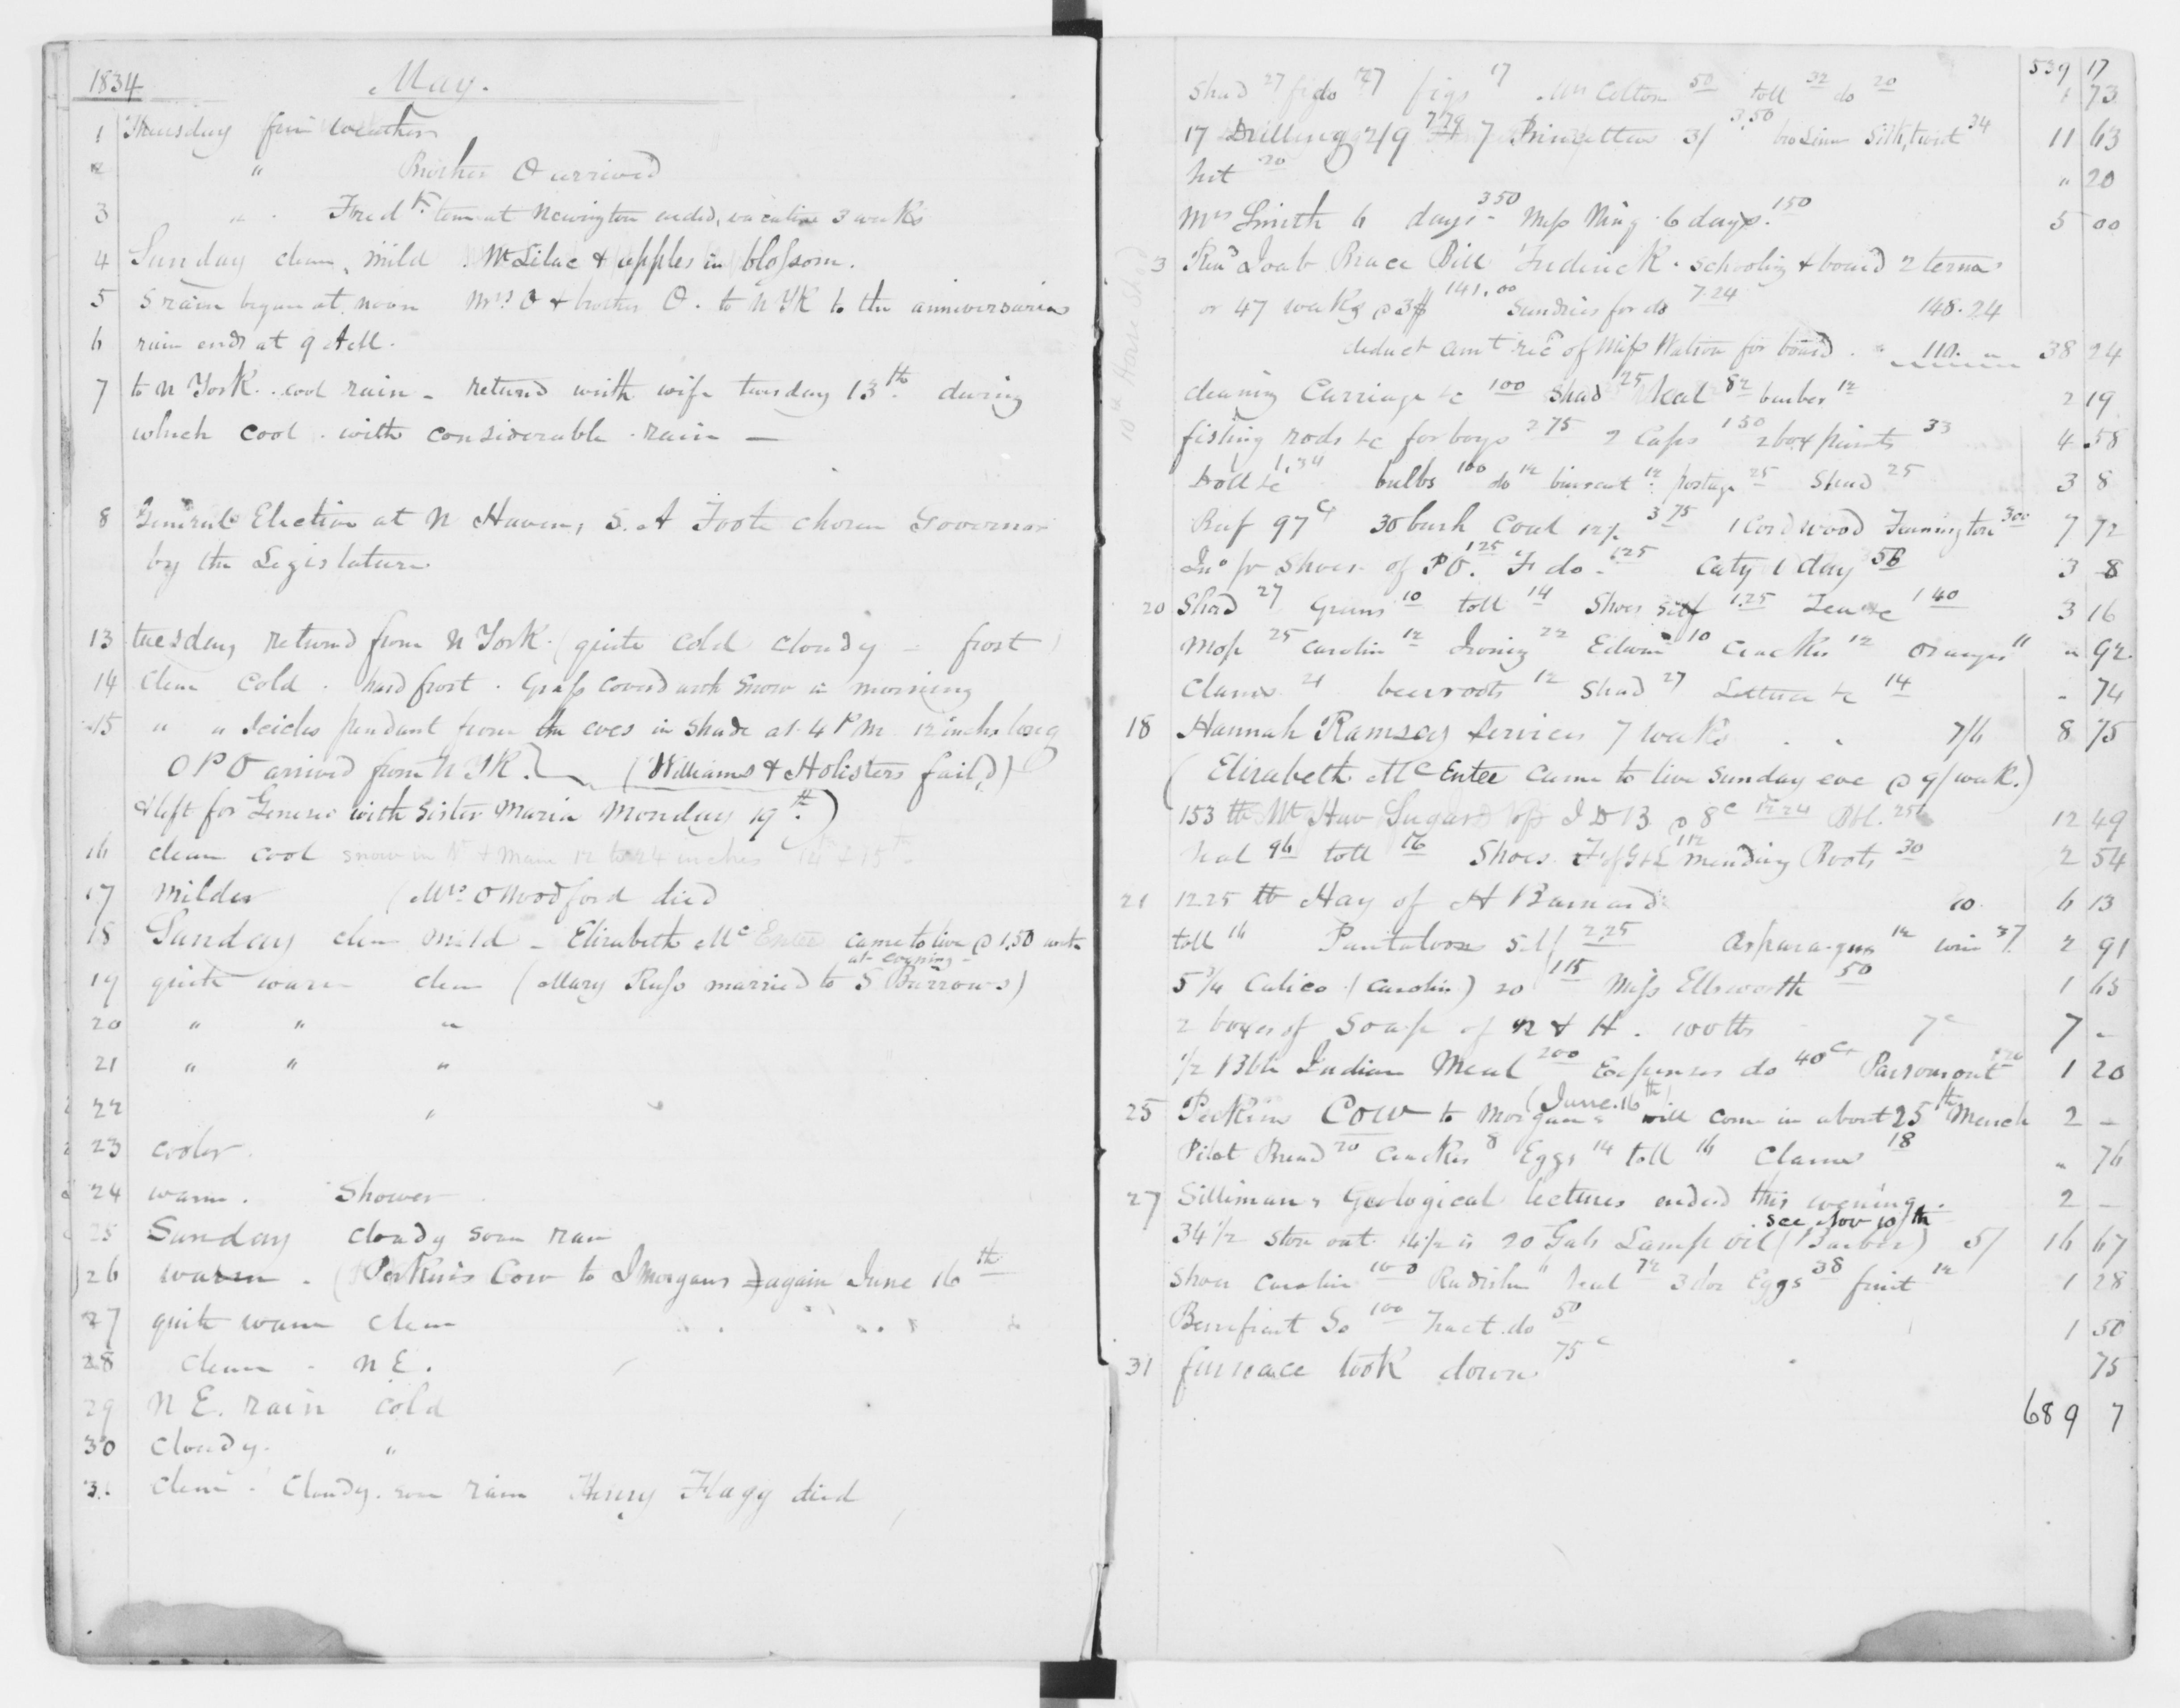 1834 May.
1 Thursday fair weather
2 " Brother O arrived
3 " Fred k. term at Newington ended, vacation 3 weeks
4 Sunday clear, mild. Wt Lilac & apples in blossom.
5 rain began at noon Mrs O & brother O. to N YK to the anniversaries
6 rain ends at 9 AM.
7 to N York. cool rain - returnd with wife tuesday 13th. during
which cool. with considerable rain —
8 General Election at N Haven, S. A Foote chosen Governor
by the Legislature.
13 tuesday returnd from N York. (quite cold cloudy - frost)
14 clear cold. hard frost. Grass coverd with snow in morning
15 " " Icicles pendant from the eves in shade at 4 PM 12 inches long
O P O arrived from N YK. (Williams & Holisters fail'd)
& left for Genesee with Sister Maria Monday 19th.)
16 clear cool snow in Vt & Main 12 to 24 inches 14th & 15th
17 milder (Mrs. O Woodford died
18 Sunday clear mild - Elizabeth Mc Entee came to live @ 1,50 week
at evening -
19 quite warm clear (Mary Russ married to S Burrows)
20 " " "
21 " " "
22 "
23 cooler.
24 warm. Shower
25 Sunday cloudy some rain
26 warm. (Perkins Cow to J Morgans) again June 16th
27 quite warm clear
28 clear - N E.
29 N E. rain cold
30 cloudy. "
31 clear. Cloudy. some rain Henry Flagg died
539 17
Shad 27 do 27 figs 17 Mrs Colton 50 toll 32 do 20 1 73
17 Drilling 2/9 7 79 7 Princetta 3/ 3.50 Silk, twist 34 11 63
net 20 " 20
Mrs Smith 6 days - 350 Miss Ning 6 days. 150 5 00
3 Revd Joab Brace Bill Frederick. schooling & board 2 terms
or 47 weeks @ 3$ 141.00 Sundries for do 7.24 148.24
deduct amt recd of Miss Watson for board. " 110. " 38 24
cleaning Carriage &c 100 Shad 25 Veal 82 barber 12 2 19
fishing rods &c for boys 275 2 Caps 150 2 box paints 33 4 58
1.34 bulbs 100 do 12 biuscuit 12 postage 25 Shad 25 3 8
Beef 97 c 30 bush Coal 12 1/2 375 1 Cord wood Farmington 300 7 72
Jno pr shoes of P O. 125 F do - 125 Caty 1 day 58 3 8
20 Shad 27 Greens 10 toll 14 Shoes self 1.25 Tea &c 1 40 3 16
Mop 25 Carolin 12 Ironing 22 Edwin 10 Cracker 12 Oranges 11 " 92
Clams 21 beer roots 12 Shad 27 Lettuce &c 14 - 74
18 Hannah Ramsey services 7 weeks 7/6 8 75
(Elizabeth Mc Entee came to live Sunday eve @ 9/ week.)
153 lb Wt Hav Sugar of J D B @ 8c 12 24 Bbl. 25 12 49
Veal 96 toll 16 Shoes F of G & L 112 mending Boots 30 2 54
21 1225 lb Hay of H Barnard 10. 6 13
toll 16 Pantaloons self 2.25 Asparagus 12 37 2 91
5 3/4 Calico (Carolin) 20 115 Miss Ellsworth 50 1 65
2 boxes of Soap of N & H. 100 lbs 7c 7 -
1/2 Bbl Indian Meal 200 Expenses do 40 c 1 20
25 Perkins Cow to Morgans (June. 16th) will come in about 25th March 2 -
Pilot Bread 20 Cracker 8 Eggs 14 toll 16 Clams 18 " 76
27 Sillimans Geological lectures ended this evening. 2 -
see Nov 10th
34 1/2 store out 14 1/2 is 20 Gals Lamp oil (Barber) 5/ 16 67
Shoes Carolin 100 Radishes " Veal 72 3 doz Eggs 38 fruit 12 1 28
Beneficent So 100 Tract do 50 1 50
31 furnace took down 75 c 75
689 7
10th Horse Shod